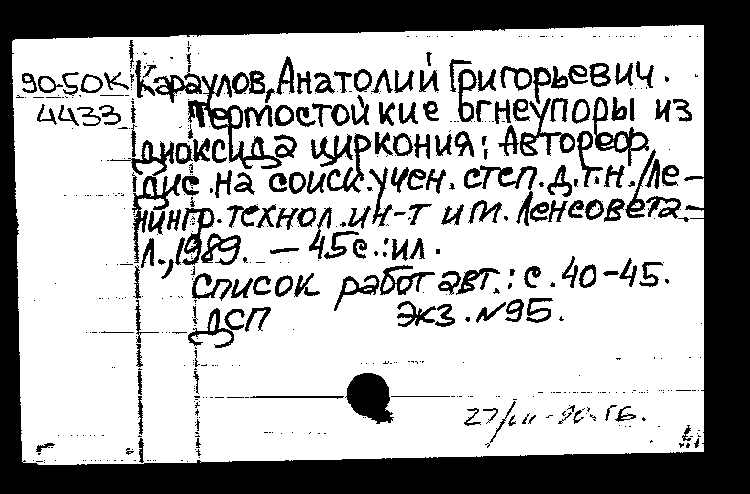 90-50К Караулов, Анатолий Григорьевич.
4433 Термостойкие огнеупоры из
диоксида циркония: Автореф.
дис. на соиск. учен. степ. д.т.н./Ле-
нингр. технол. ин-т им. Ленсовета.-
Л., 1989. - 45с.:ил.
Список работ авт.: с. 40-45.
ДСП Экз. №95.